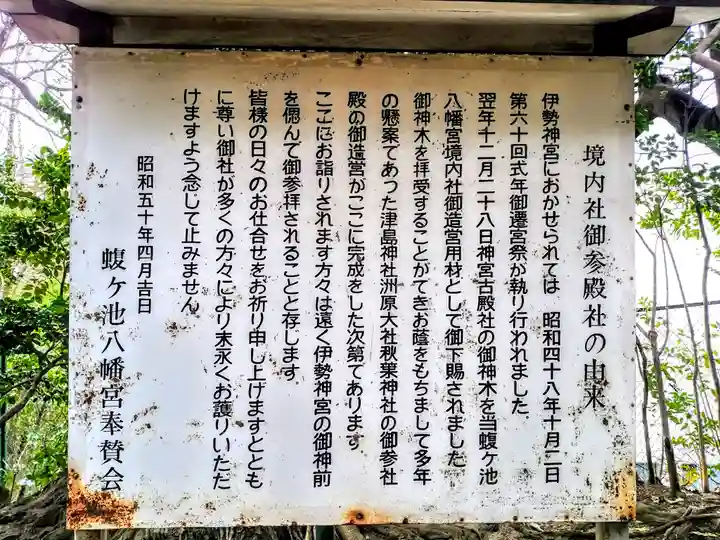 境内社御参殿社の由来
伊勢神宮におかせられては 昭和四十八年十月二日
第六十回式年御遷宮祭が執り行われました
翌年十二月二十八日神宮古殿社の御神木を当蝮ケ池
八幡宮境内社御造営用材として御下賜されました
御神木を拝受することができお蔭をもちまして多年
の懸案であった津島神社洲原大社秋葉神社の御参社
殿の御造営がここに完成をした次第であります
ここにお詣りされます方々は遠く伊勢神宮の御神前
を偲んで御参拝されることと存します
皆様の日々のお仕合せをお祈り申し上げますととも
に尊い御社が多くの方々により末永くお護りいただ
けますよう念じて止みません
昭和五十年四月吉日
蝮ケ池八幡宮奉賛会